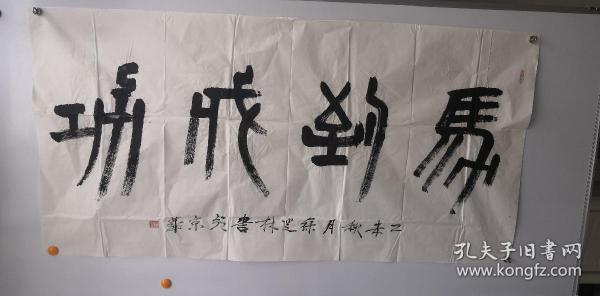 馬到成功
乙未秋月林書於京華
孔夫子旧书网
www.kongfz.com